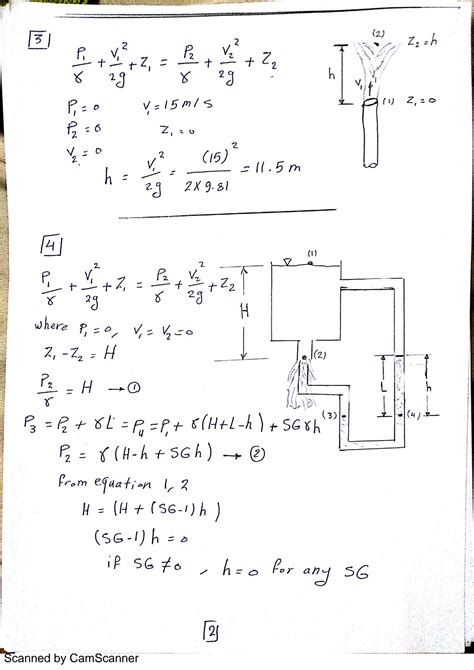 3
P₁/γ + V₁²/2g + Z₁ = P₂/γ + V₂²/2g + Z₂
P₁ = 0 V₁ = 15 m/s
P₂ = 0 Z₁ = 0
V₂ = 0
h = V₁²/2g = (15)²/2x9.81 = 11.5 m
(2) Z₂ = h
h
V₁
(1) Z₁ = 0
4
P₁/γ + V₁²/2g + Z₁ = P₂/γ + V₂²/2g + Z₂
where P₁ = 0, V₁ = V₂ = 0
Z₁ - Z₂ = H
P₂/γ = H → ①
P₃ = P₂ + γL = P₄ = P₁ + γ(H+L-h) + SGγh
P₂ = γ(H-h + SGh) → ②
From equation 1, 2
H = (H + (SG-1)h)
(SG-1)h = 0
if SG ≠ 0, h = 0 for any SG
(1)
H
(2)
L
h
(3)
(4)
2
Scanned by CamScanner